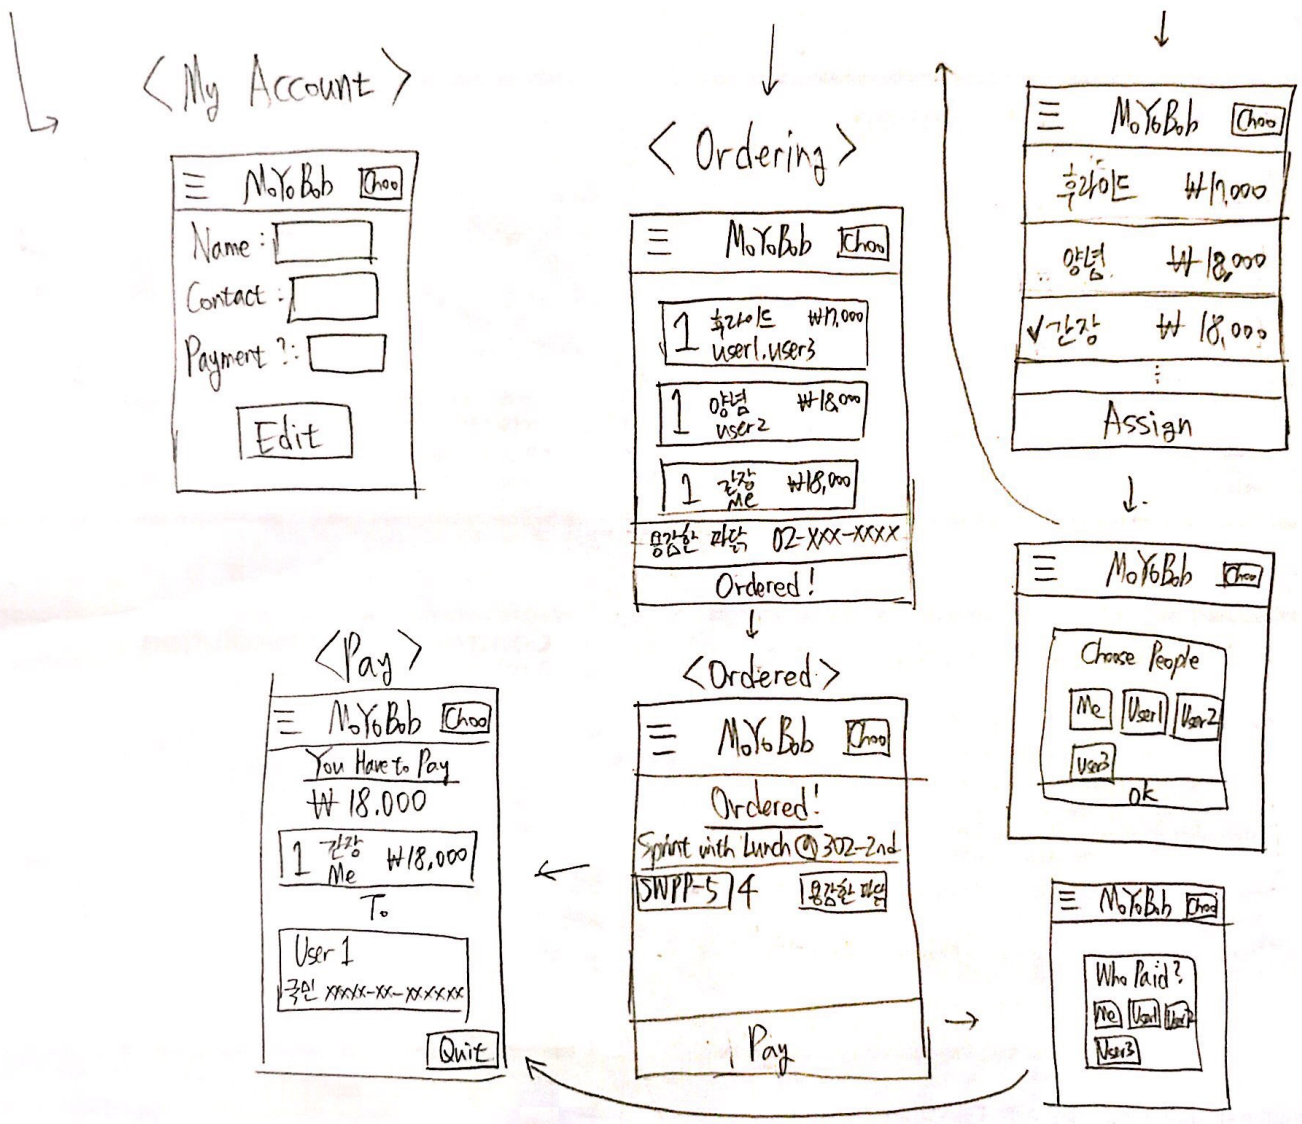 <My Account>
☰ MoYoBob Choo
Name :
Contact :
Payment ? :
Edit
<Ordering>
☰ MoYoBob Choo
1 후라이드 ₩17,000
user1, user3
1 양념 ₩18,000
user2
1 간장 ₩18,000
Me
용감한 파닭 02-XXX-XXXX
Ordered!
☰ MoYoBob Choo
후라이드 ₩17,000
양념 ₩18,000
✓간장 ₩18,000
⋮
Assign
☰ MoYoBob Choo
Choose People
Me User1 User2
User3
ok
<Pay>
☰ MoYoBob Choo
You Have to Pay
₩ 18.000
1 간장 ₩18,000
Me
To
User 1
국민 xxxxx-xx-xxxxxx
Quit
<Ordered>
☰ MoYoBob Choo
Ordered!
Sprint with Lunch @ 302-2nd
SWPP-5 4 용감한 파닭
Pay
☰ MoYoBob Choo
Who Paid?
Me User1 User2
User3